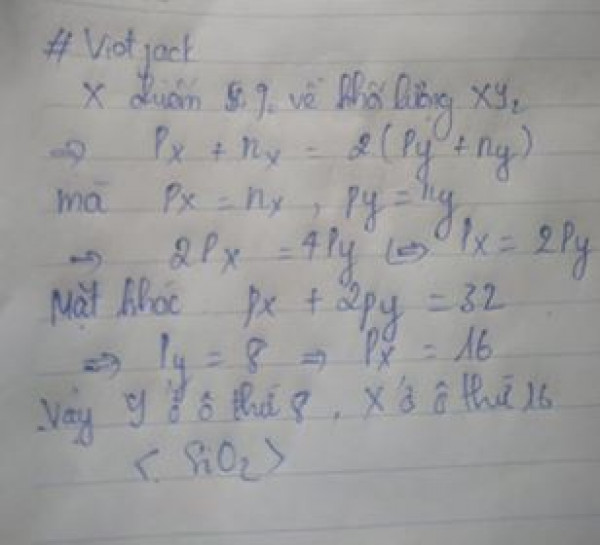 # Viotjack
X chiếm 50% về khối lượng XY₂
⇒ Px + nx = 2(Py + ny)
mà Px = nx, py = ny
⇒ 2Px = 4Py ⇔ Px = 2Py
Mặt khác px + 2py = 32
⇒ Py = 8 ⇒ Px = 16
Vậy Y ở ô thứ 8, X ở ô thứ 16
< SiO₂ >